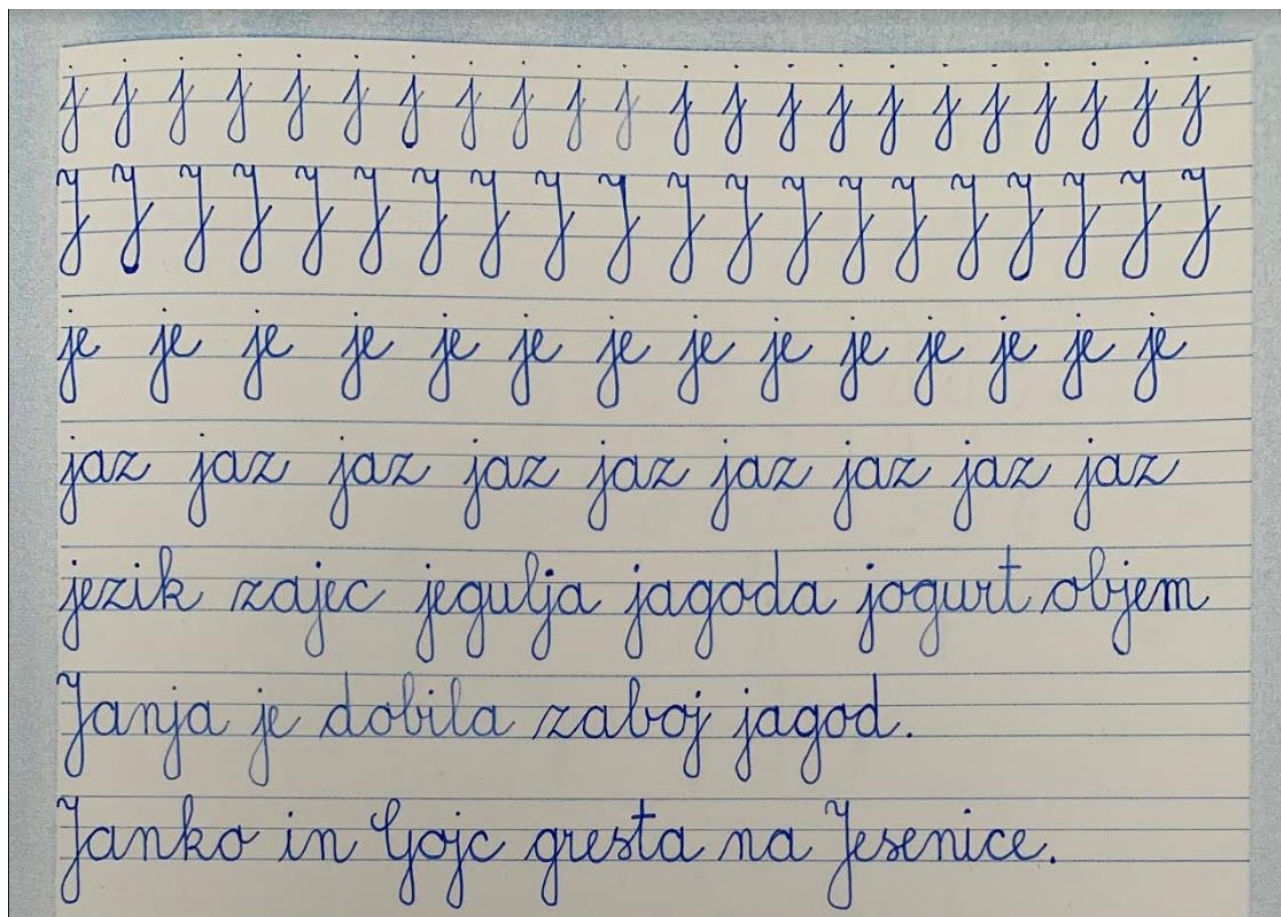 j j j j j j j j j j j j j j j j j j j j j j
J J J J J J J J J J J J J J J J J J J J
je je je je je je je je je je je je je je
jaz jaz jaz jaz jaz jaz jaz jaz jaz
jezik zajec jegulja jagoda jogurt objem
Janja je dobila zaboj jagod.
Janko in Gojc gresta na Jesenice.